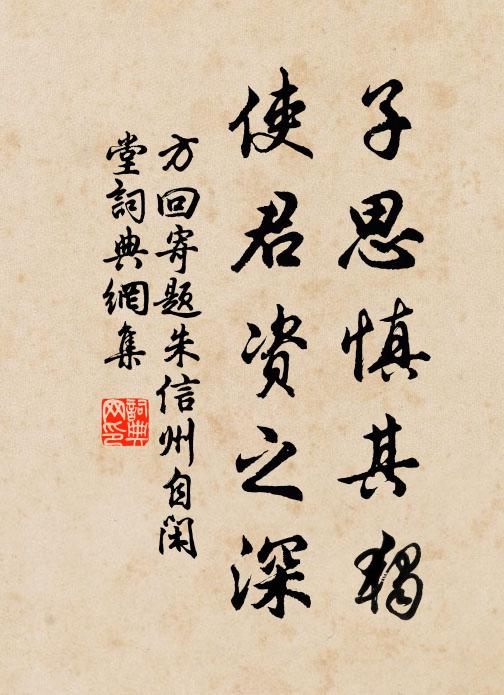 子思慎其獨
使君资之深
方回寄题朱信州自闲
堂詞典網集
詞典网印